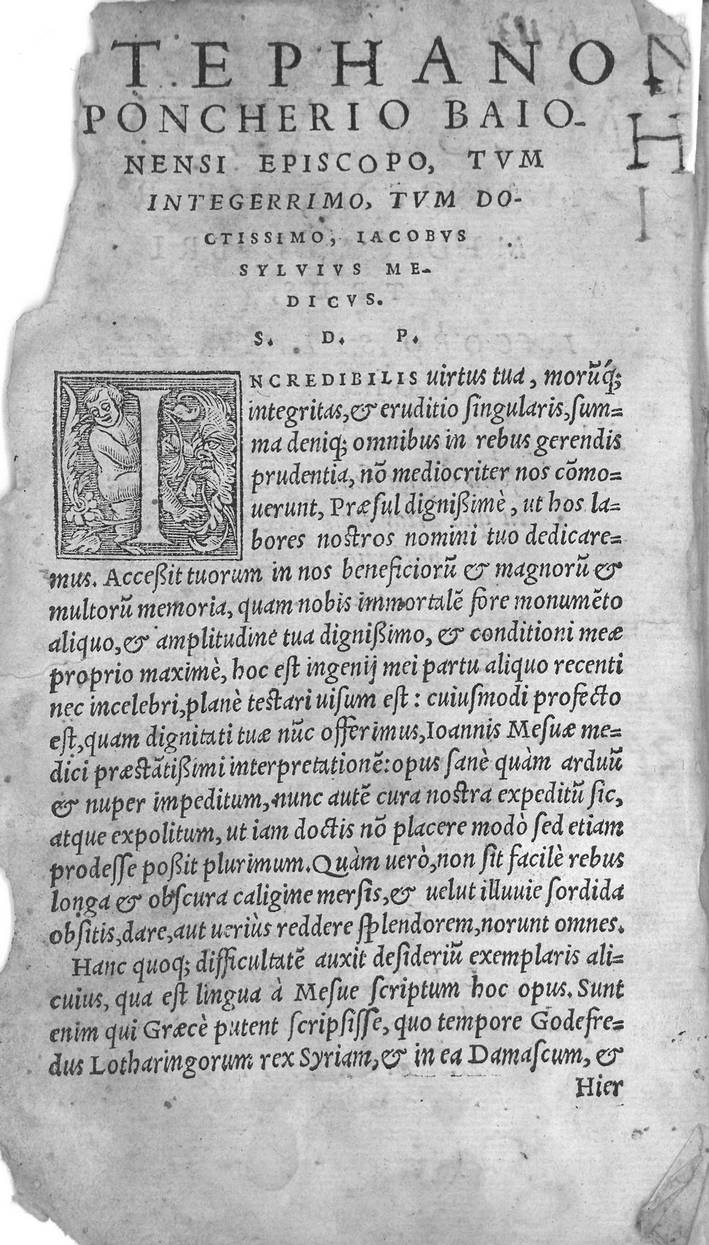 TEPHANO
PONCHERIO BAIO-
NENSI EPISCOPO, TVM
INTEGERRIMO, TVM DO-
CTISSIMO, IACOBVS
SYLVIVS ME-
DICVS.
S. D. P.
INCREDIBILIS uirtus tua, morũq́;
integritas, & eruditio ſingularis, ſum=
ma deniq; omnibus in rebus gerendis
prudentia, nõ mediocriter nos cõmo=
uerunt, Præſul digniſsimè, ut hos la=
bores noſtros nomini tuo dedicare=
mus. Acceſsit tuorum in nos beneficiorũ & magnorũ &
multorũ memoria, quam nobis immortalẽ fore monumẽto
aliquo, & amplitudine tua digniſsimo, & conditioni meæ
proprio maximè, hoc eſt ingenij mei partu aliquo recenti
nec incelebri, planè teſtari uiſum eſt: cuiuſmodi profecto
eſt, quam dignitati tuæ nũc offerimus, Ioannis Meſuæ me=
dici præſtãtiſsimi interpretationẽ: opus ſanè quàm arduũ
& nuper impeditum, nunc autẽ cura noſtra expeditũ ſic,
atque expolitum, ut iam doctis nõ placere modò ſed etiam
prodeſſe poſsit plurimum. Quàm uerò, non ſit facilè rebus
longa & obſcura caligine merſis, & uelut illuuie ſordida
obſitis, dare, aut ueriùs reddere ſplendorem, norunt omnes.
Hanc quoq; difficultatẽ auxit deſideriũ exemplaris ali=
cuius, qua eſt lingua à Meſue ſcriptum hoc opus. Sunt
enim qui Græcè putent ſcripſiſſe, quo tempore Godefre=
dus Lotharingorum rex Syriam, & in ea Damaſcum, &
Hier